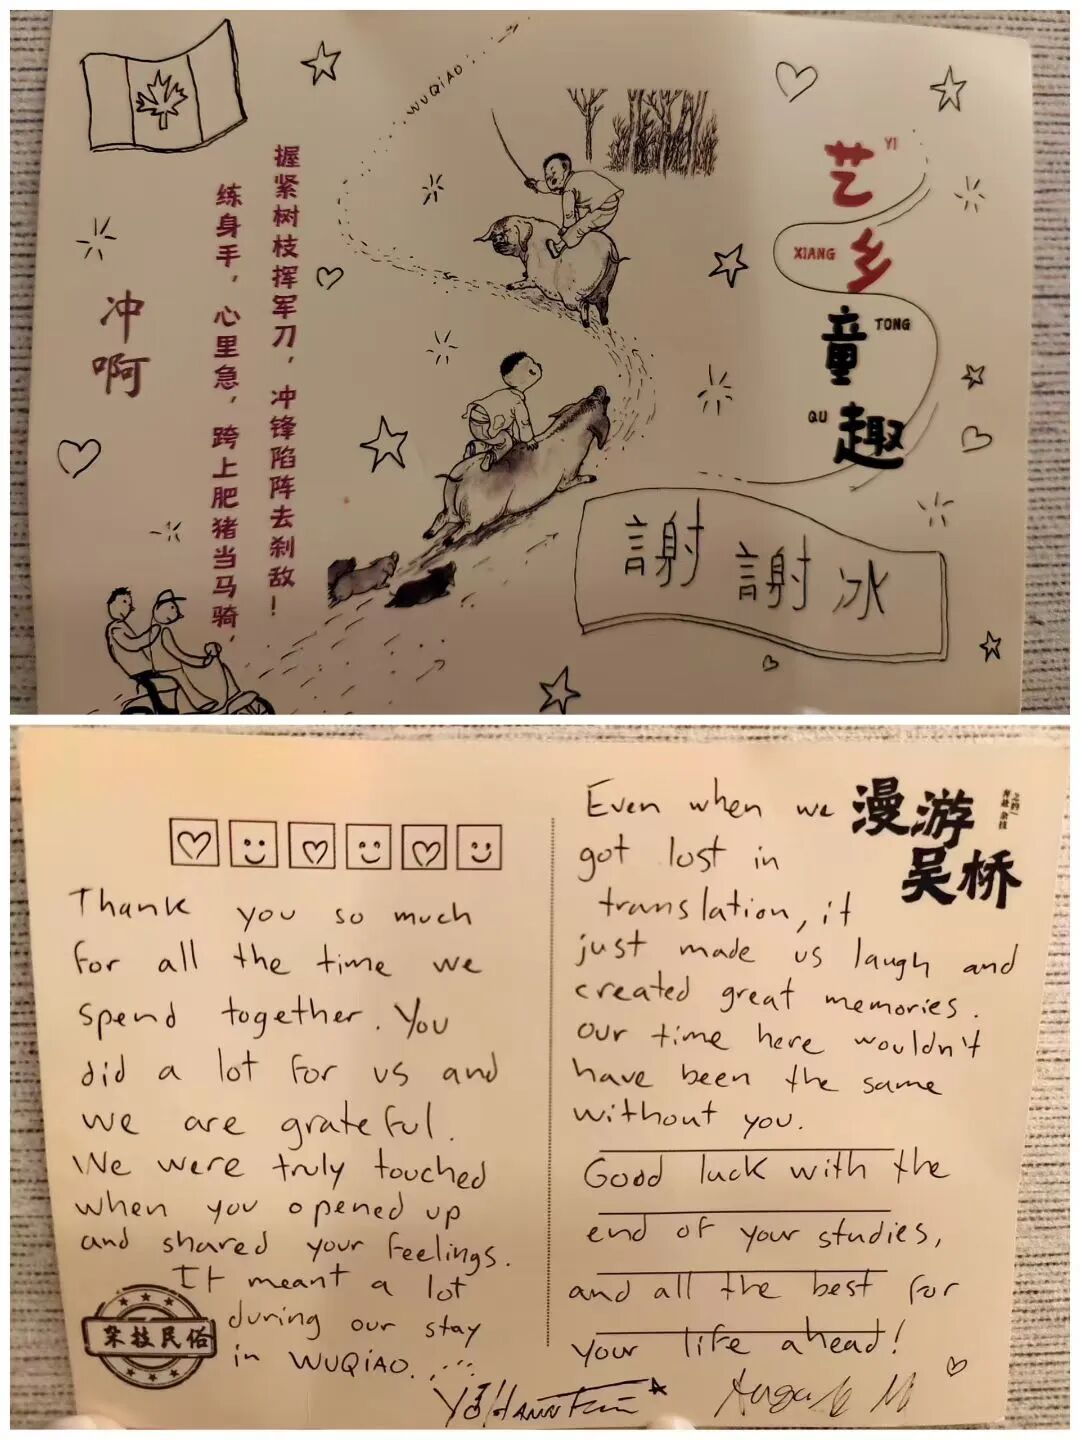 WUQIAO
艺
YI
XIANG
乡
童
TONG
QU
趣
握紧树枝挥军刀，冲锋陷阵去刹敌！
练身手，心里急，跨上肥猪当马骑，
冲
啊
謝謝冰
Thank you so much
for all the time we
spend together. You
did a lot for us and
we are grateful.
We were truly touched
when you opened up
and shared your feelings.
It meant a lot
during our stay
in WUQIAO...
杂技民俗
漫游
吴桥
Even when we
got lost in
translation, it
just made us laugh and
created great memories.
our time here wouldn't
have been the same
without you.
Good luck with the
end of your studies,
and all the best for
your life ahead!